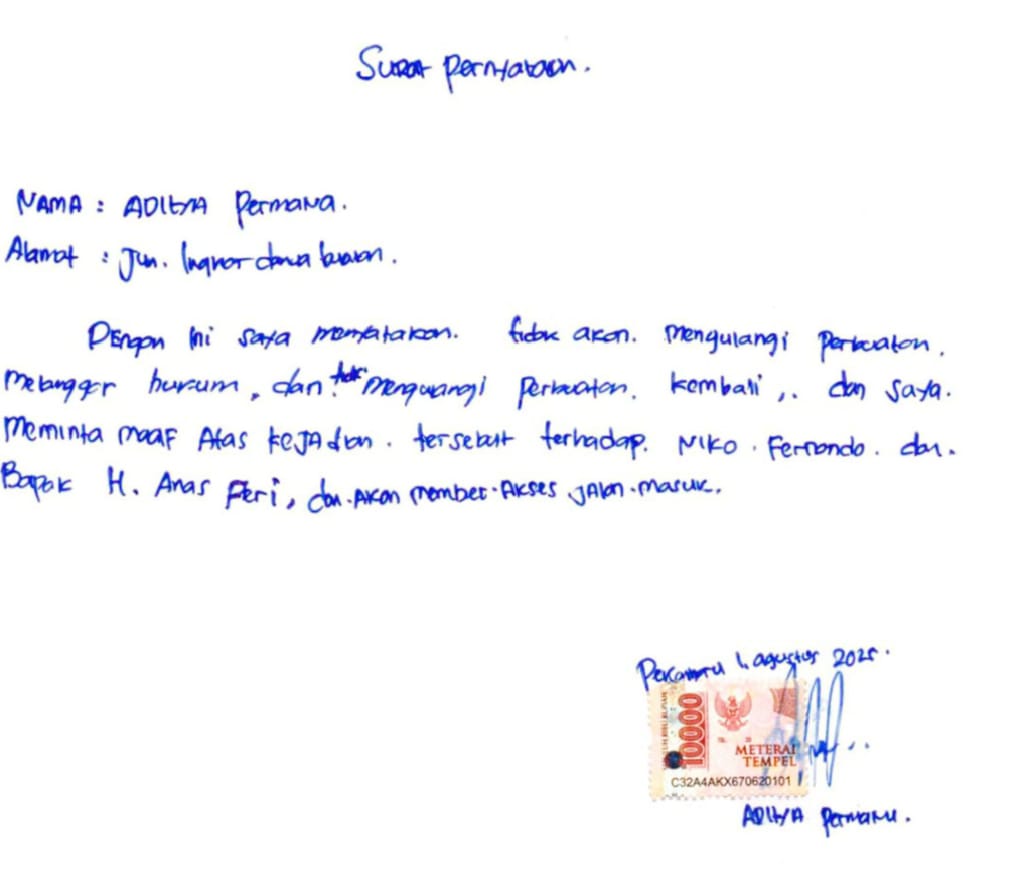 Surat pernyataan.
NAMA : ADItYA Permana.
Alamat : Jln.
Dengan ini saya menyatakan. tidak akan. mengulangi perbuatan.
melanggar hukum, dan tidak mengulangi perbuatan. kembali,. dan saya.
meminta maaf Atas kejadian. tersebut terhadap. Niko. Fernando. dan.
Bapak H. Anas Feri, dan. Akan member. Akses jalan. masuk.
1, agustus 2025.
10000
METERAI
TEMPEL
C32A4AKX670620101
ADItYA Permana.